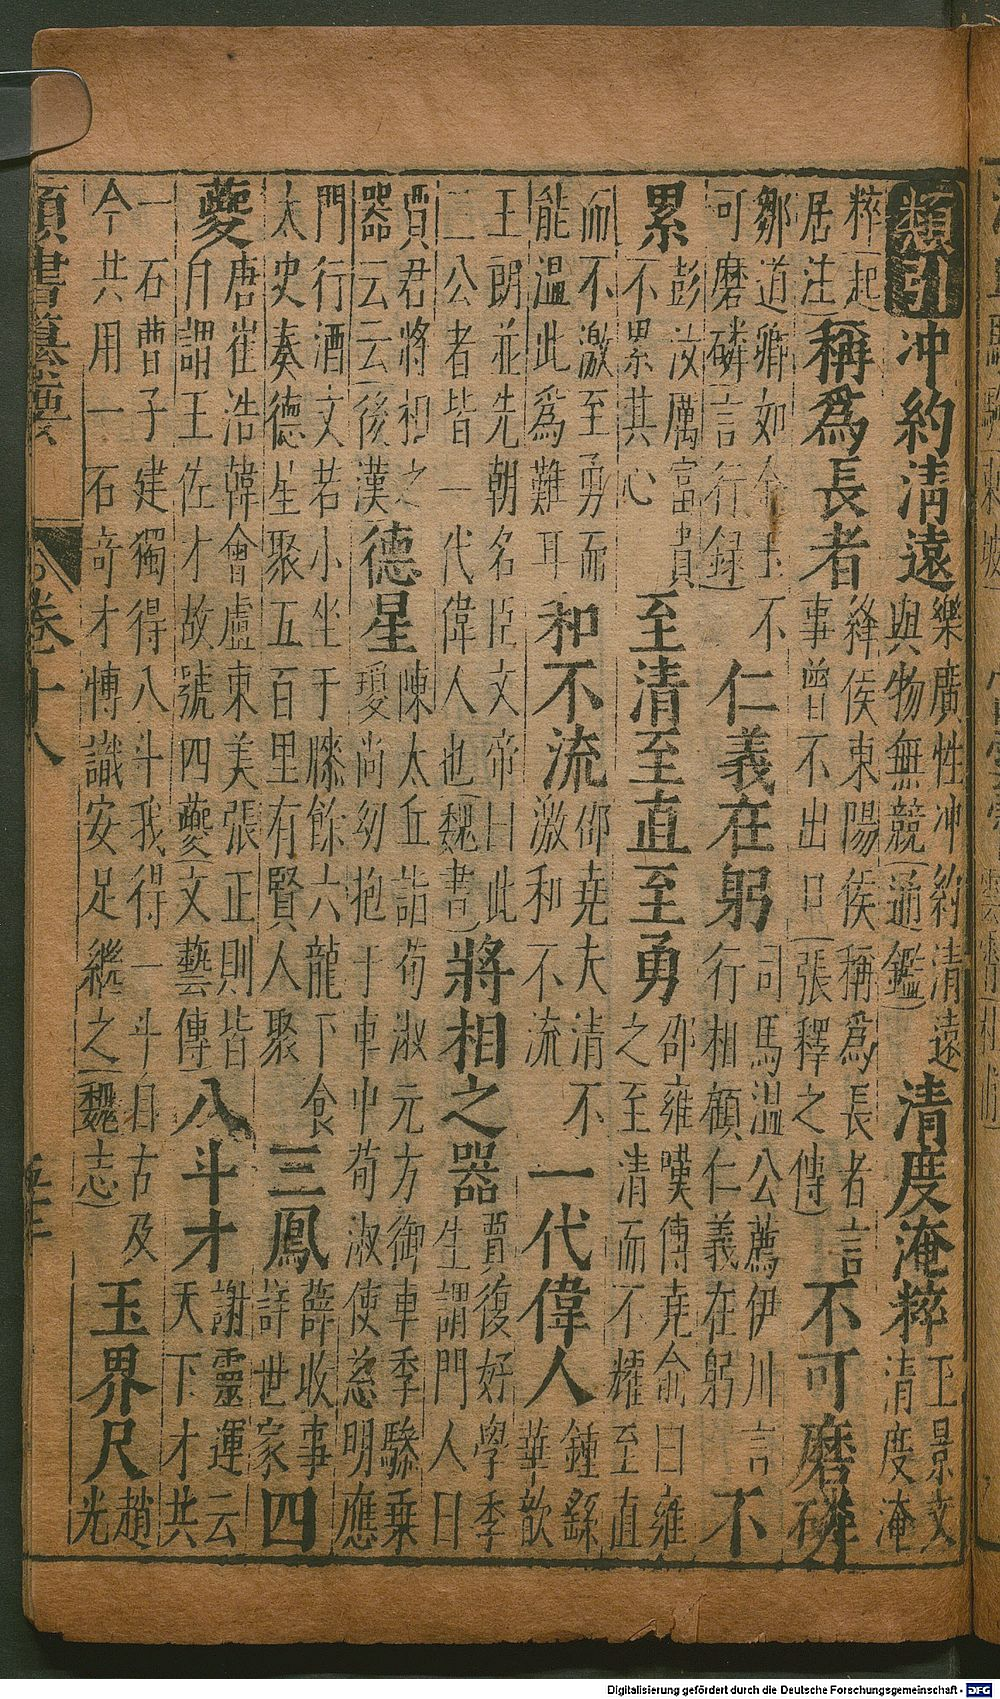 類引冲約清遠樂廣性冲約清遠與物無競(通鑑)清度淹粹王景文清度淹
粹(起居注)稱爲長者絳侯東陽侯稱爲長者言事曾不出口(張釋之傳)不可磨磷
鄒道鄉如金玉不可磨磷(言行録)仁義在躬司馬温公薦伊川言行相顧仁義在躬不
累彭汝厲富貴不累其心至清至直至勇邵雍嘆傅堯俞曰雍之至清而不耀至直
而不激至勇而能温此爲難耳和不流邵堯夫清不激和不流一代偉人鍾繇華歆
王朗並先朝名臣文帝曰此三公者皆一代偉人也(魏書)將相之器賈復好學李生謂門人曰
賈君將相之器云云(後漢)德星陳太丘詣荀淑元方御車季驂乗瓊尚幼抱于車中荀淑使慈明應
門行酒文若小坐于膝餘六龍下食太史奏德星聚五百里有賢人聚三鳳薛收事詳世家四
夔唐崔浩韓會盧東美張正則皆自謂王佐才故號四夔(文藝傳)八斗才謝靈運云天下才共
一石曹子建獨得八斗我得一斗自古及今共用一石奇才博識安足繼之(魏志)玉界尺趙光
類書纂要 卷十八
Digitalisierung gefördert durch die Deutsche Forschungsgemeinschaft - DFG